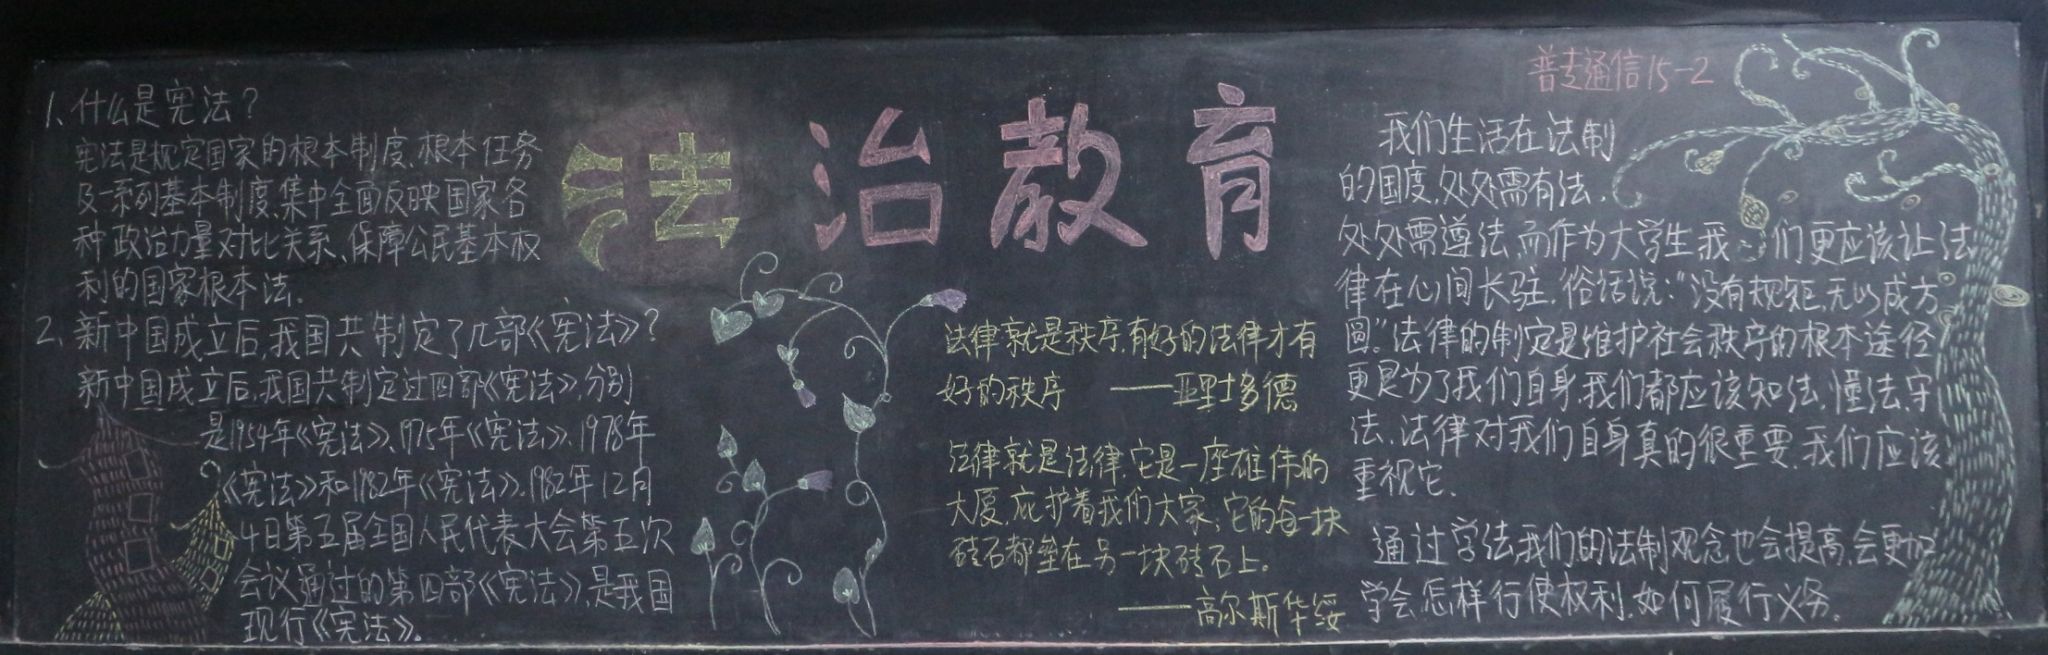 1、什么是宪法?
宪法是规定国家的根本制度、根本任务
及一系列基本制度、集中全面反映国家各
种政治力量对比关系、保障公民基本权
利的国家根本法.
2、新中国成立后,我国共制定了几部《宪法》?
新中国成立后,我国共制定过四部《宪法》,分别
是1954年《宪法》、1975年《宪法》、1978年
《宪法》和1982年《宪法》.1982年12月
4日第五届全国人民代表大会第五次
会议通过的第四部《宪法》,是我国
现行《宪法》.
法治教育
法律就是秩序,有好的法律才有
好的秩序 ——亚里士多德
法律就是法律,它是一座雄伟的
大厦,庇护着我们大家;它的每一块
砖石都垒在另一块砖石上。
——高尔斯华绥
普专通信15-2
我们生活在法制
的国度,处处需有法,
处处需遵法,而作为大学生,我们更应该让法
律在心间长驻.俗话说:"没有规矩,无以成方
圆."法律的制定是维护社会秩序的根本途径
更是为了我们自身,我们都应该知法,懂法,守
法.法律对我们自身真的很重要.我们应该
重视它.
通过学法,我们的法制观念也会提高,会更加
学会怎样行使权利,如何履行义务.